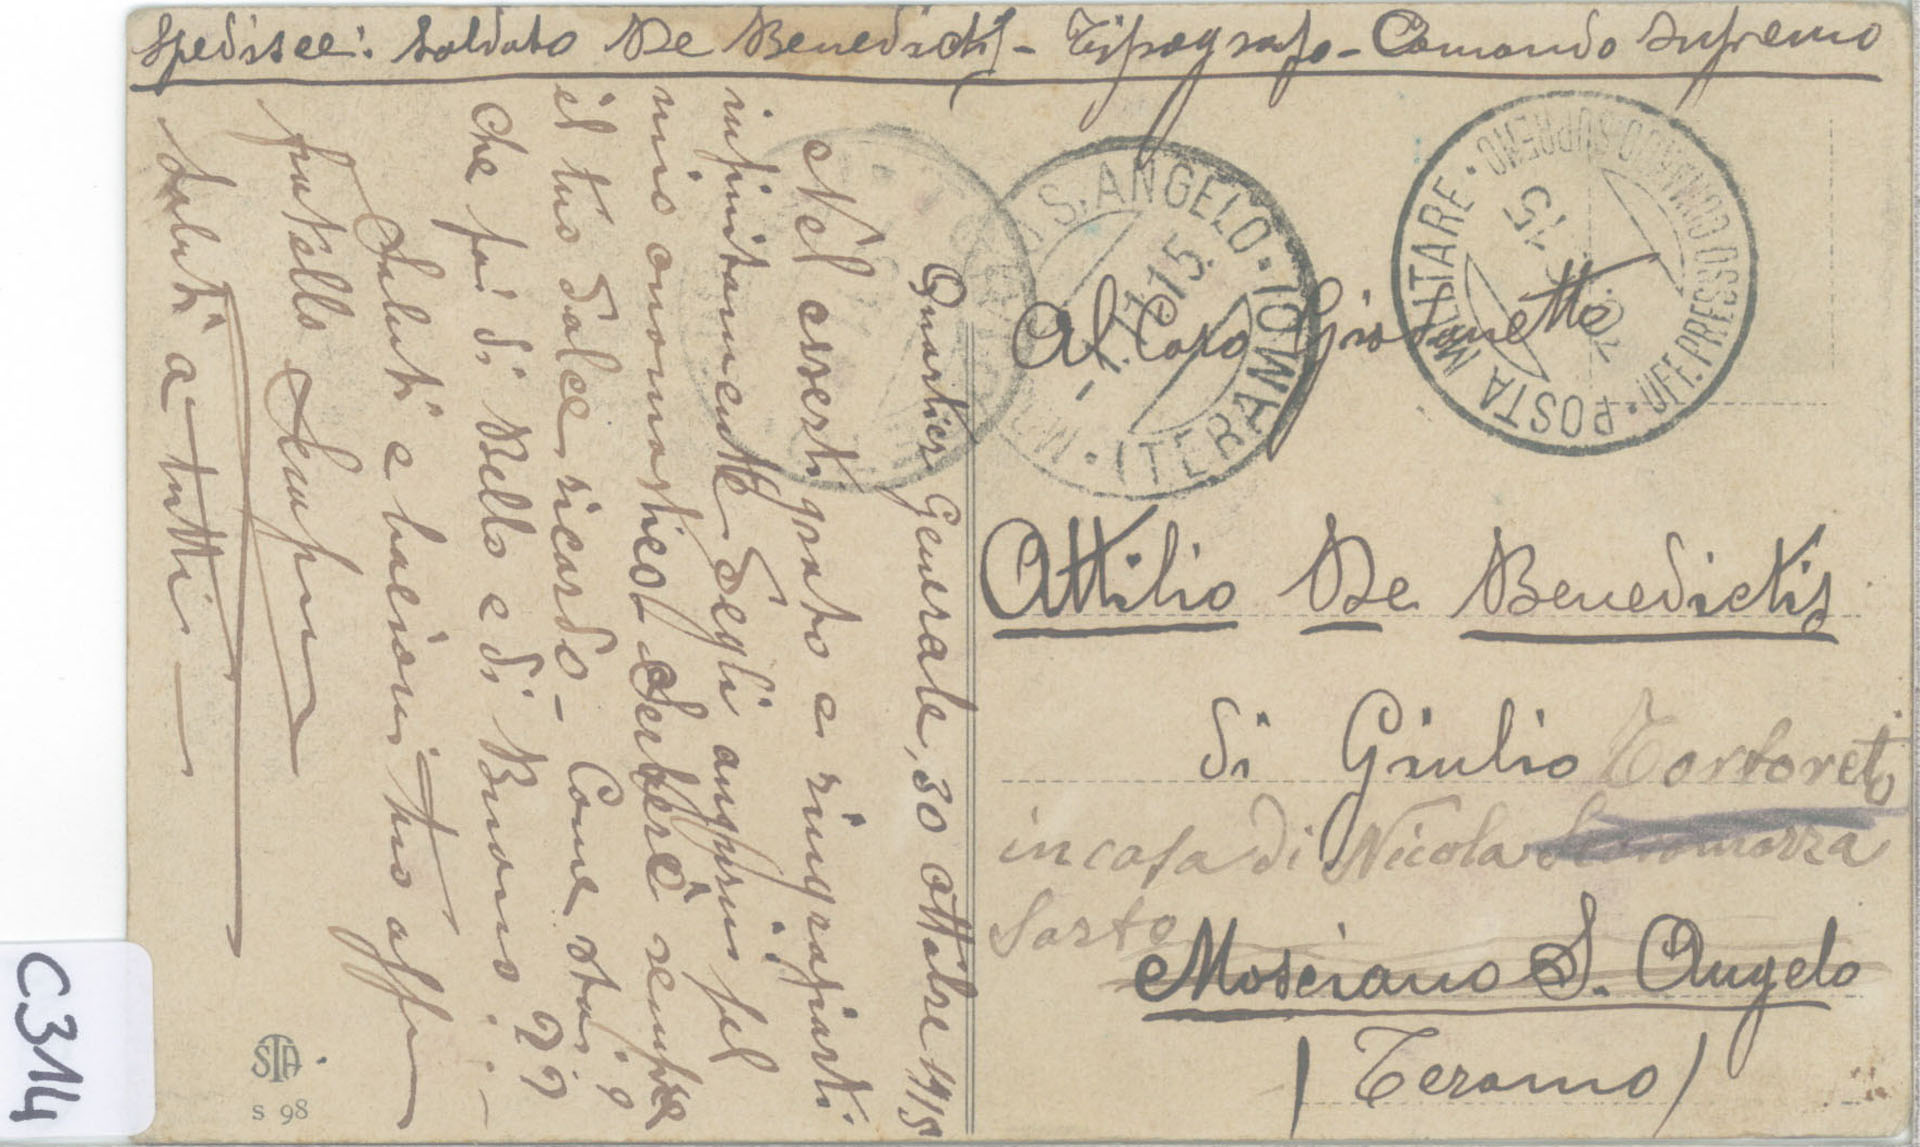 Spedisce: Soldato De Benedictis - Tipografo - Comando Supremo
Quartier Generale, 30 ottobre 1915
Nel esserti grato e ringraziarti
infinitamente degli auguri pel
mio onomastico! Serberò sempre
il tuo dolce ricordo - Come stai?
che fai di Bello e di Buono? ? ?
Saluti e bacioni tuo affmo
fratello
Saluti a tutti
POSTA MILITARE · UFF. PRESSO COMANDO SUPREMO ·
15
S. ANGELO · (TERAMO) ·
1.11.15.
Al Caro Giovanetto
Attilio De Benedictis
di Giulio Tortoreto
in casa di Nicola
Sarto
Mosciano S. Angelo
(Teramo)
STA
S 98
C314